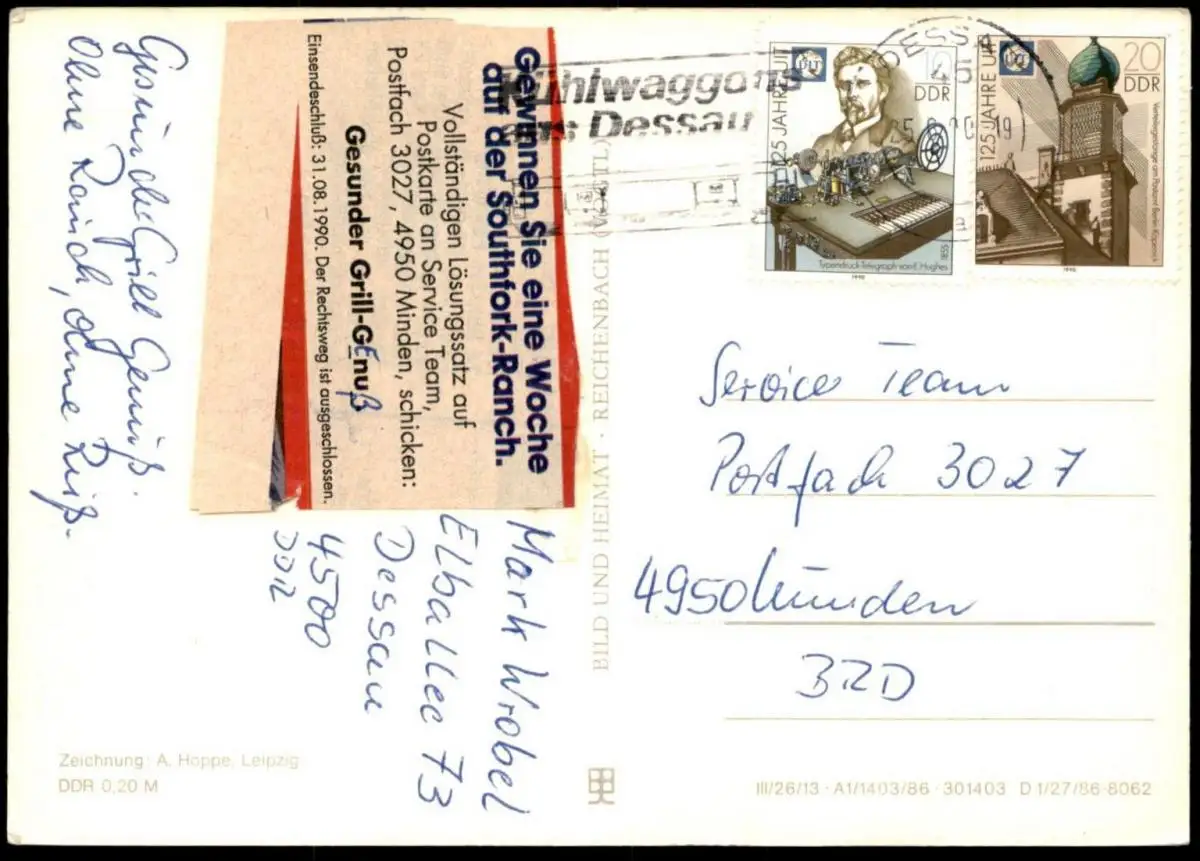 Gesunder Grill Genuß.
Ohne Rauch, ohne Ruß.
Gewinnen Sie eine Woche
auf der Southfork-Ranch.
Vollständigen Lösungssatz auf
Postkarte an Service Team,
Postfach 3027, 4950 Minden, schicken:
Gesunder Grill-GEnuß
Einsendeschluß: 31.08.1990. Der Rechtsweg ist ausgeschlossen.
Mark Wrobel
Elballee 73
Dessau
4500
DDR
Kühlwaggons
aus Dessau
DESSAU
45
125 JAHRE UIT
10
DDR
Typendruck-Telegraph von E. Hughes
1855
1990
125 JAHRE UIT
20
DDR
Verteilergestänge am Postamt Berlin-Köpenick
1990
BILD UND HEIMAT · REICHENBACH
Service Team
Postfach 3027
4950 Minden
BRD
Zeichnung: A. Hoppe, Leipzig
DDR 0,20 M
III/26/13 · A1/1403/86 · 301403 D 1/27/86-8062